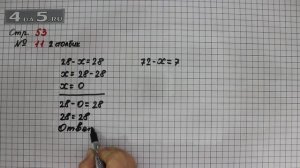 4АДЗ5.RU
Стр. 53
№ 11 2 столбик
28 - x = 28
x = 28 - 28
x = 0
28 - 0 = 28
28 = 28
Ответ
72 - x = 7